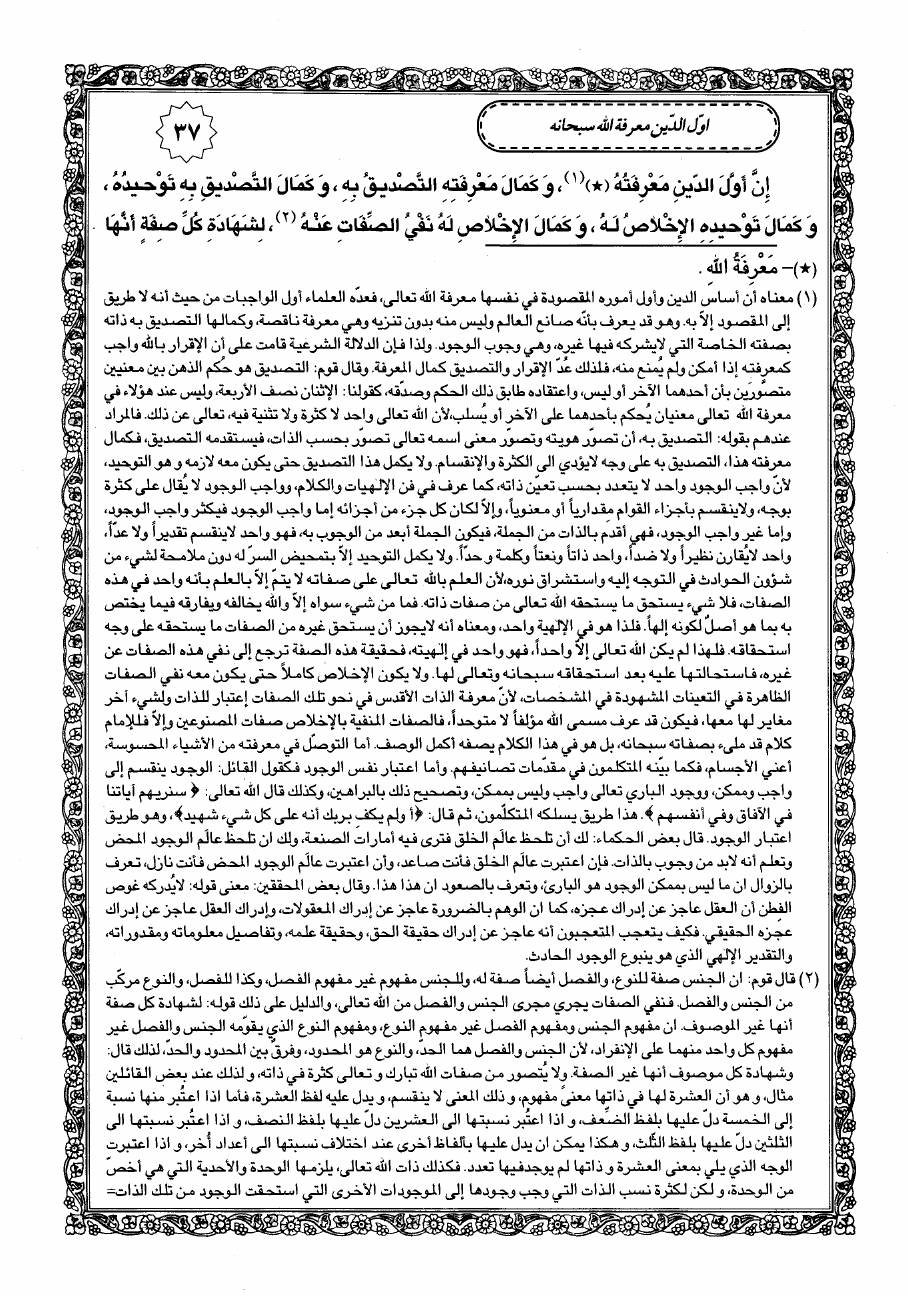 اوّل الدّين معرفة الله سبحانه
٣٧
إِنَّ أَوَّلَ الدِّينِ مَعْرِفَتُهُ (★)(١)، وَ كَمَالَ مَعْرِفَتِهِ التَّصْدِيقُ بِهِ، وَ كَمَالَ التَّصْدِيقِ بِهِ تَوْحِيدُهُ،
وَ كَمَالَ تَوْحِيدِهِ الإِخْلَاصُ لَهُ، وَ كَمَالَ الإِخْلَاصِ لَهُ نَفْيُ الصِّفَاتِ عَنْهُ (٢)، لِشَهَادَةِ كُلِّ صِفَةٍ أَنَّهَا
(★)– مَعْرِفَةُ اللهِ.
(١) معناه أن أساس الدين وأول أموره المقصودة في نفسها معرفة الله تعالى، فعدّه العلماء أول الواجبات من حيث أنه لا طريق
إلى المقصود إلاّ به. وهو قد يعرف بأنّه صانع العالم وليس منه بدون تنزيه وهي معرفة ناقصة، وكمالها التصديق به ذاته
بصفته الخاصة التي لايشركه فيها غيره، وهي وجوب الوجود. ولذا فإن الدلالة الشرعية قامت على أن الإقرار بالله واجب
كمعرفته إذا أمكن ولم يُمنع منه، فلذلك عدّ الإقرار والتصديق كمال المعرفة. وقال قوم: التصديق هو حكم الذهن بين معنيين
متصوّرَين بأن أحدهما الآخر أو ليس، واعتقاده طابق ذلك الحكم وصدّقه، كقولنا: الإثنان نصف الأربعة، وليس عند هؤلاء في
معرفة الله تعالى معنيان يُحكم بأحدهما على الآخر أو يُسلب،لأن الله تعالى واحد لا كثرة ولا تثنية فيه، تعالى عن ذلك. فالمراد
عندهم بقوله: التصديق به، أن تصوّر هويته وتصوّر معنى اسمه تعالى تصوّر بحسب الذات، فيستقدمه التصديق، فكمال
معرفته هذا، التصديق به على وجه لايؤدي الى الكثرة والإنقسام. ولا يكمل هذا التصديق حتى يكون معه لازمه و هو التوحيد،
لأنّ واجب الوجود واحد لا يتعدد بحسب تعيّن ذاته، كما عرف في فن الإلهيات والكلام، وواجب الوجود لا يُقال على كثرة
بوجه، ولاينقسم بأجزاء القوام مقدارياً أو معنوياً، وإلاّ لكان كل جزء من أجزائه إما واجب الوجود فيكثر واجب الوجود،
وإما غير واجب الوجود، فهي أقدم بالذات من الجملة، فيكون الجملة أبعد من الوجوب به، فهو واحد لاينقسم تقديراً ولا عدّاً،
واحد لايُقارن نظيراً ولا ضداً، واحد ذاتاً ونعتاً وكلمة و حدّاً. ولا يكمل التوحيد إلاّ بتمحيض السرّ له دون ملامحة لشيء من
شؤون الحوادث في التوجه إليه واستشراق نوره،لأن العلم بالله تعالى على صفاته لا يتمّ إلاّ بالعلم بأنه واحد في هذه
الصفات، فلا شيء يستحق ما يستحقه الله تعالى من صفات ذاته. فما من شيء سواه إلاّ والله يخالفه ويفارقه فيما يختص
به بما هو أصلٌ لكونه إلهاً. فلذا هو في الإلهية واحد، ومعناه أنه لايجوز أن يستحق غيره من الصفات ما يستحقه على وجه
استحقاقه. فلهذا لم يكن الله تعالى إلاّ واحداً، فهو واحد في إلهيته، فحقيقة هذه الصفة ترجع إلى نفي هذه الصفات عن
غيره، فاستحالتها عليه بعد استحقاقه سبحانه وتعالى لها. ولا يكون الإخلاص كاملاً حتى يكون معه نفي الصفات
الظاهرة في التعينات المشهودة في المشخصات، لأنّ معرفة الذات الأقدس في نحو تلك الصفات إعتبار للذات ولشيء آخر
مغاير لها معها، فيكون قد عرف مسمى الله مؤلفاً لا متوحداً، فالصفات المنفية بالإخلاص صفات المصنوعين وإلاّ فللإمام
كلام قد ملىء بصفاته سبحانه، بل هو في هذا الكلام يصفه أكمل الوصف. أما التوصّل في معرفته من الأشياء المحسوسة،
أعني الأجسام، فكما بيّنه المتكلمون في مقدّمات تصانيفهم. وأما اعتبار نفس الوجود فكقول القائل: الوجود ينقسم إلى
واجب وممكن، ووجود الباري تعالى واجب وليس بممكن، وتصحيح ذلك بالبراهين، وكذلك قال الله تعالى: ﴿ سنريهم أياتنا
في الآفاق وفي أنفسهم ﴾. هذا طريق يسلكه المتكلّمون، ثم قال: ﴿أ ولم يكف بربك أنه على كل شيء شهيد﴾، وهو طريق
اعتبار الوجود. قال بعض الحكماء: لك أن تلحظ عالَم الخلق فترى فيه أمارات الصنعة، ولك ان تلحظ عالَم الوجود المحض
وتعلم أنه لابد من وجوب بالذات. فإن اعتبرت عالَم الخلق فأنت صاعد، وأن اعتبرت عالَم الوجود المحض فأنت نازل، تعرف
بالزوال ان ما ليس بممكن الوجود هو البارئ، وتعرف بالصعود ان هذا هذا. وقال بعض المحققين: معنى قوله: لايُدركه غوص
الفطن أن العقل عاجز عن إدراك عجزه، كما ان الوهم بالضرورة عاجز عن إدراك المعقولات، وإدراك العقل عاجز عن إدراك
عجزه الحقيقي. فكيف يتعجب المتعجبون أنه عاجز عن إدراك حقيقة الحق، وحقيقة علمه، وتفاصيل معلوماته ومقدوراته،
والتقدير الإلهي الذي هو ينبوع الوجود الحادث.
(٢) قال قوم: ان الجنس صفة للنوع، والفصل أيضاً صفة له، وللجنس مفهوم غير مفهوم الفصل، وكذا للفصل، والنوع مركّب
من الجنس والفصل. فنفي الصفات يجري مجرى الجنس والفصل من الله تعالى، والدليل على ذلك قوله: لشهادة كل صفة
أنها غير الموصوف. ان مفهوم الجنس ومفهوم الفصل غير مفهوم النوع، ومفهوم النوع الذي يقوّمه الجنس والفصل غير
مفهوم كل واحد منهما على الإنفراد، لأن الجنس والفصل هما الحدّ، والنوع هو المحدود، وفرقٌ بين المحدود والحدّ، لذلك قال:
وشهادة كل موصوف أنها غير الصفة. ولا يُتصور من صفات الله تبارك و تعالى كثرة في ذاته، و لذلك عند بعض القائلين
مثال، و هو أن العشرة لها في ذاتها معنىً مفهوم، و ذلك المعنى لا ينقسم، و يدل عليه لفظ العشرة، فأما اذا اعتُبر منها نسبة
إلى الخمسة دلّ عليها بلفظ الضّعف، و اذا اعتُبر نسبتها الى العشرين دلّ عليها بلفظ النصف، و اذا اعتُبر نسبتها الى
الثلثين دلّ عليها بلفظ الثّلث، و هكذا يمكن ان يدل عليها بالفاظ أخرى عند اختلاف نسبتها الى أعداد أُخر، و اذا اعتبرت
الوجه الذي يلي بمعنى العشرة و ذاتها لم يوجدفيها تعدد. فكذلك ذات الله تعالى، يلزمها الوحدة والأحدية التي هي أخصّ
من الوحدة، و لكن لكثرة نسب الذات التي وجب وجودها إلى الموجودات الأخرى التي استحقت الوجود من تلك الذات=